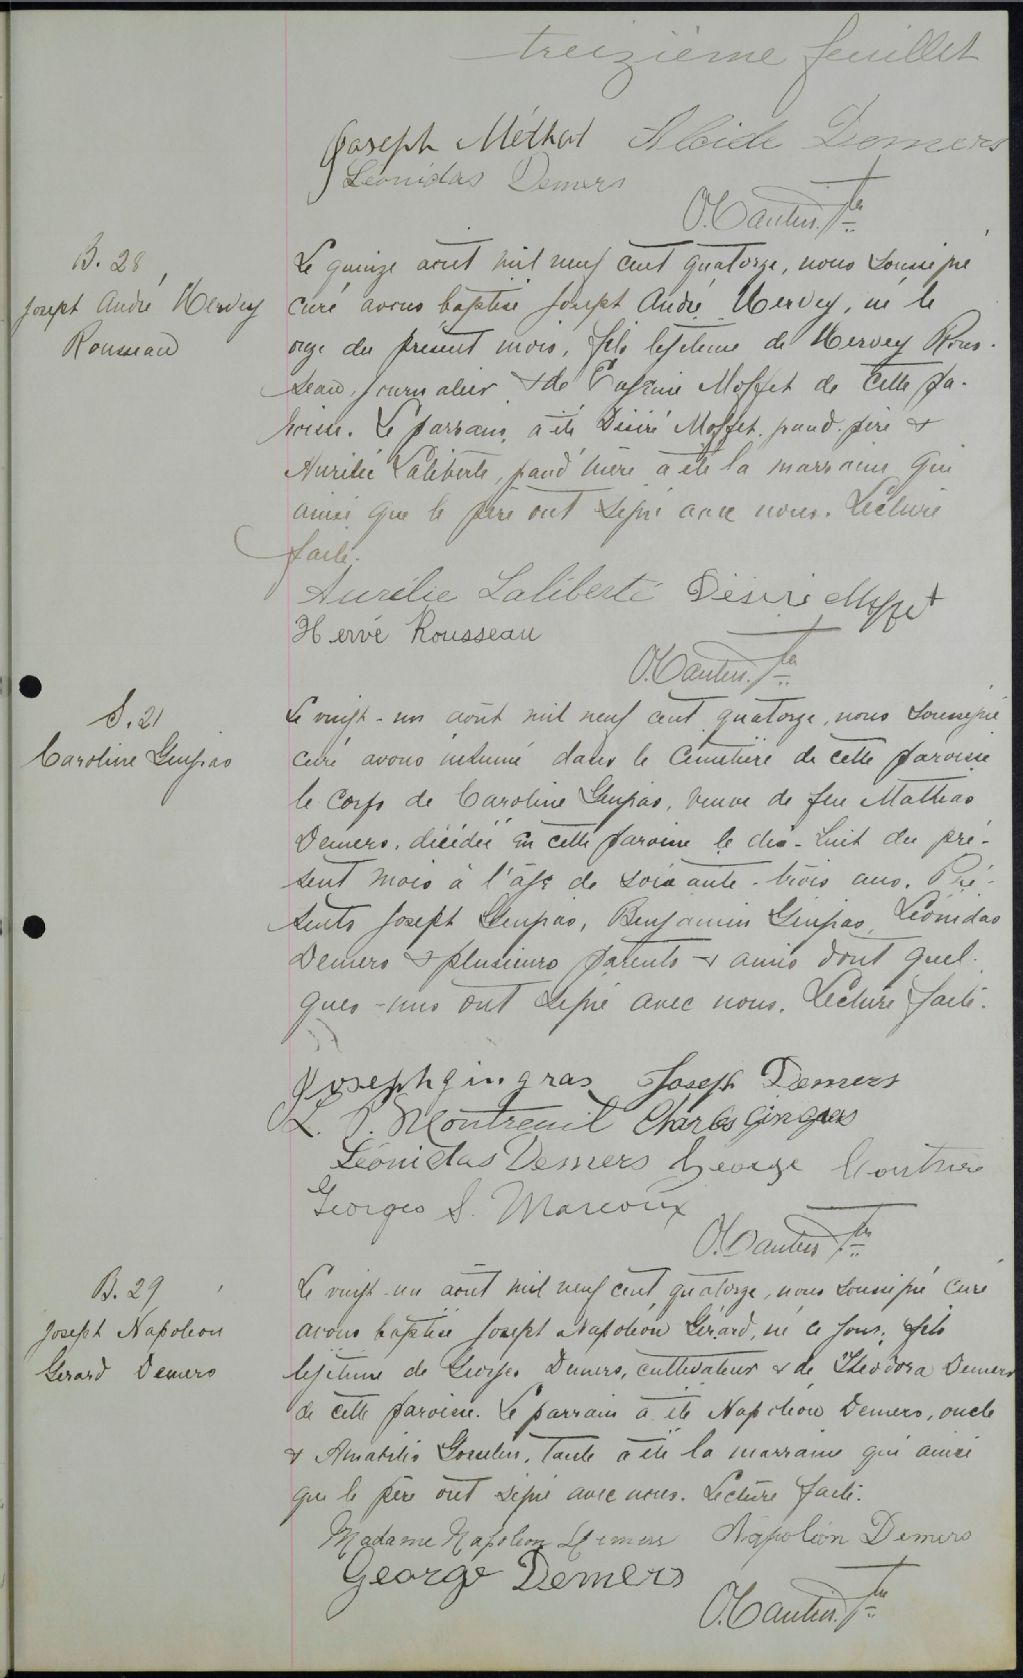 treizième feuillet
Joseph Méthot Alcide Demers
Léonidas Demers
O. Cantin. Ptre
B. 28
Joseph André Hervey
Rousseau
Le quinze août mil neuf cent quatorze, nous soussigné
curé avons baptisé Joseph André Hervey, né le
onze du présent mois, fils légitime de Hervey Rous-
seau, journalier & de Moffet de cette pa-
roisse. Le parrain a été Désiré Moffet grand-père &
Aurélie Laliberté, grand'mère a été la marraine qui
ainsi que le père ont signé avec nous. Lecture
faite.
Aurélie Laliberté Désiré Moffet
Hervé Rousseau
O. Cantin. Ptre
S. 21
Caroline Gingras
Le vingt-un août mil neuf cent quatorze, nous soussigné
curé avons inhumé dans le cimetière de cette paroisse
le corps de Caroline Gingras, veuve de feu Mathias
Demers, décédée en cette paroisse le dix-huit du pré-
sent mois à l'âge de soixante-trois ans. Pré-
sents Joseph Gingras, Benjamin Gingras, Léonidas
Demers & plusieurs parents & amis dont quel-
ques-uns ont signé avec nous. Lecture faite.
Joseph gingras Joseph Demers
L. P. Montreuil Charles Gingras
Léonidas Demers George Couture
Georges S. Marcoux
O. Cantin Ptre
B. 29
Joseph Napoléon
Gérard Demers
Le vingt-un août mil neuf cent quatorze, nous soussigné curé
avons baptisé Joseph Napoléon Gérard, né ce jour, fils
légitime de Georges Demers, cultivateur & de Théodora Demers
de cette paroisse. Le parrain a été Napoléon Demers, oncle
& Amabilis Gosselin, tante a été la marraine qui ainsi
que le père ont signé avec nous. Lecture faite.
Madame Napoléon Demers Napoléon Demers
George Demers
O. Cantin. Ptre